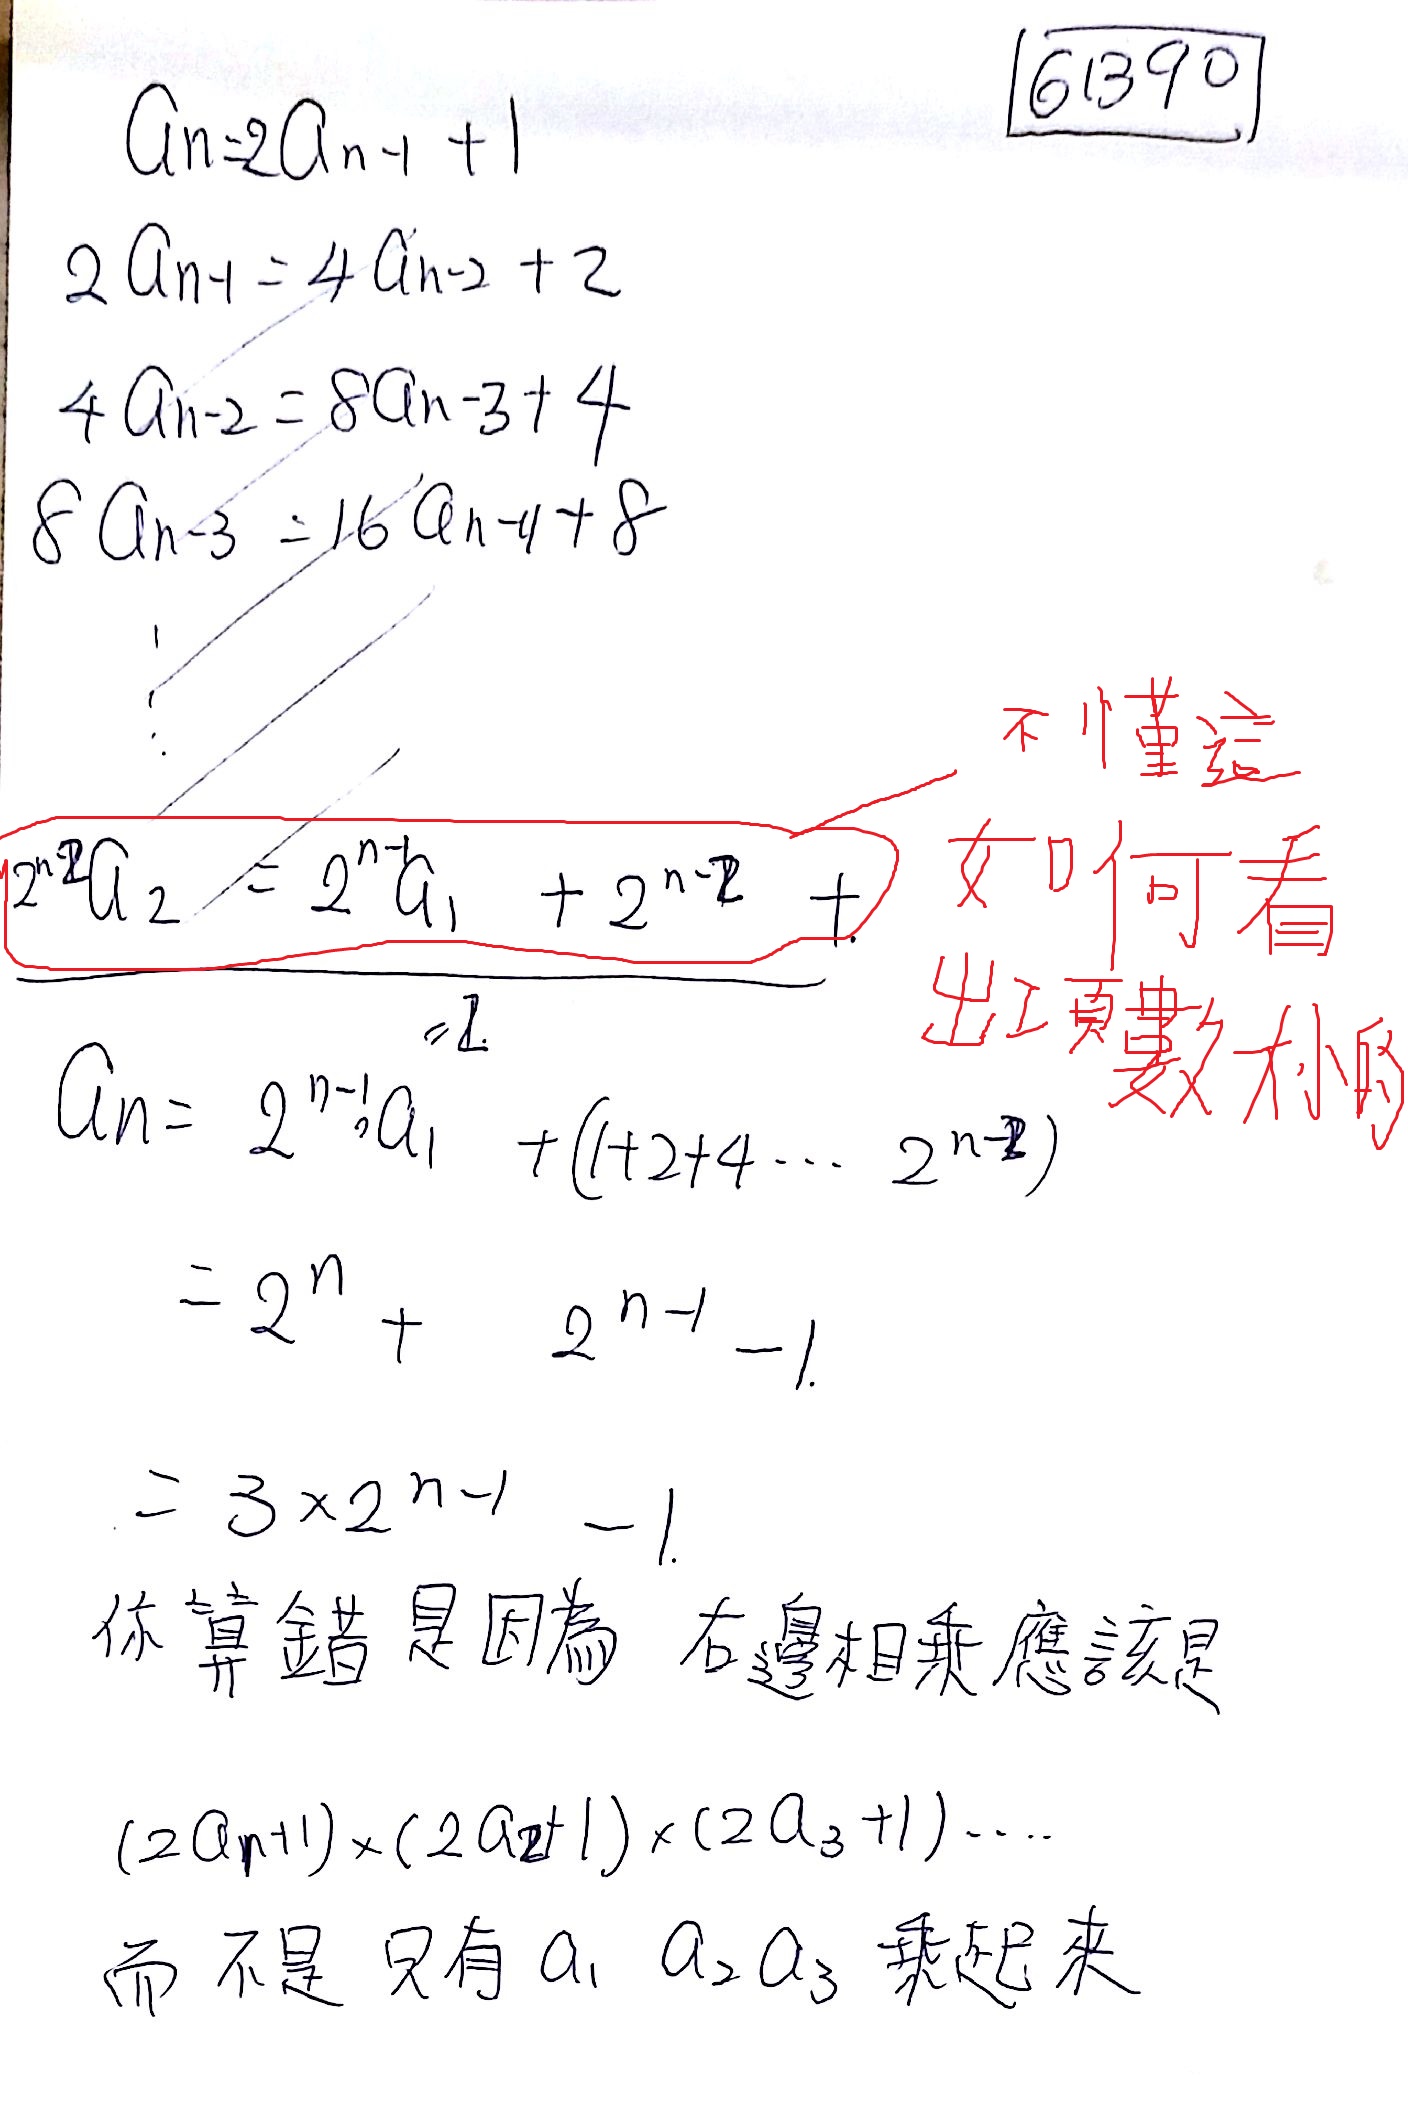 61390
an=2an-1 +1
2an-1=4an-2+2
4an-2=8an-3+4
8an-3=16an-4+8
不懂這
如何看
出項數才的
2^n-2 a2 = 2^n-1 a1 + 2^n-2 +
=2
an= 2^n-1 a1 +(1+2+4... 2^n-2)
=2^n + 2^n-1 -1.
=3×2^n-1 -1.
你算錯是因為 右邊相乘應該是
(2a1+1)×(2a2+1)×(2a3+1)....
而不是只有a1 a2 a3 乘起來